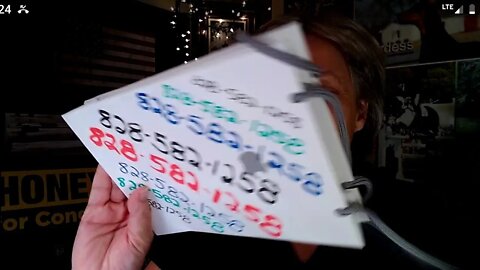 24
LTE
828-582-1258
828-582-1258
828-582-1258
828-582-1258
828-582-1258
828-582-1258
828-582-1258
582-1258
HONE
or Cong
dess